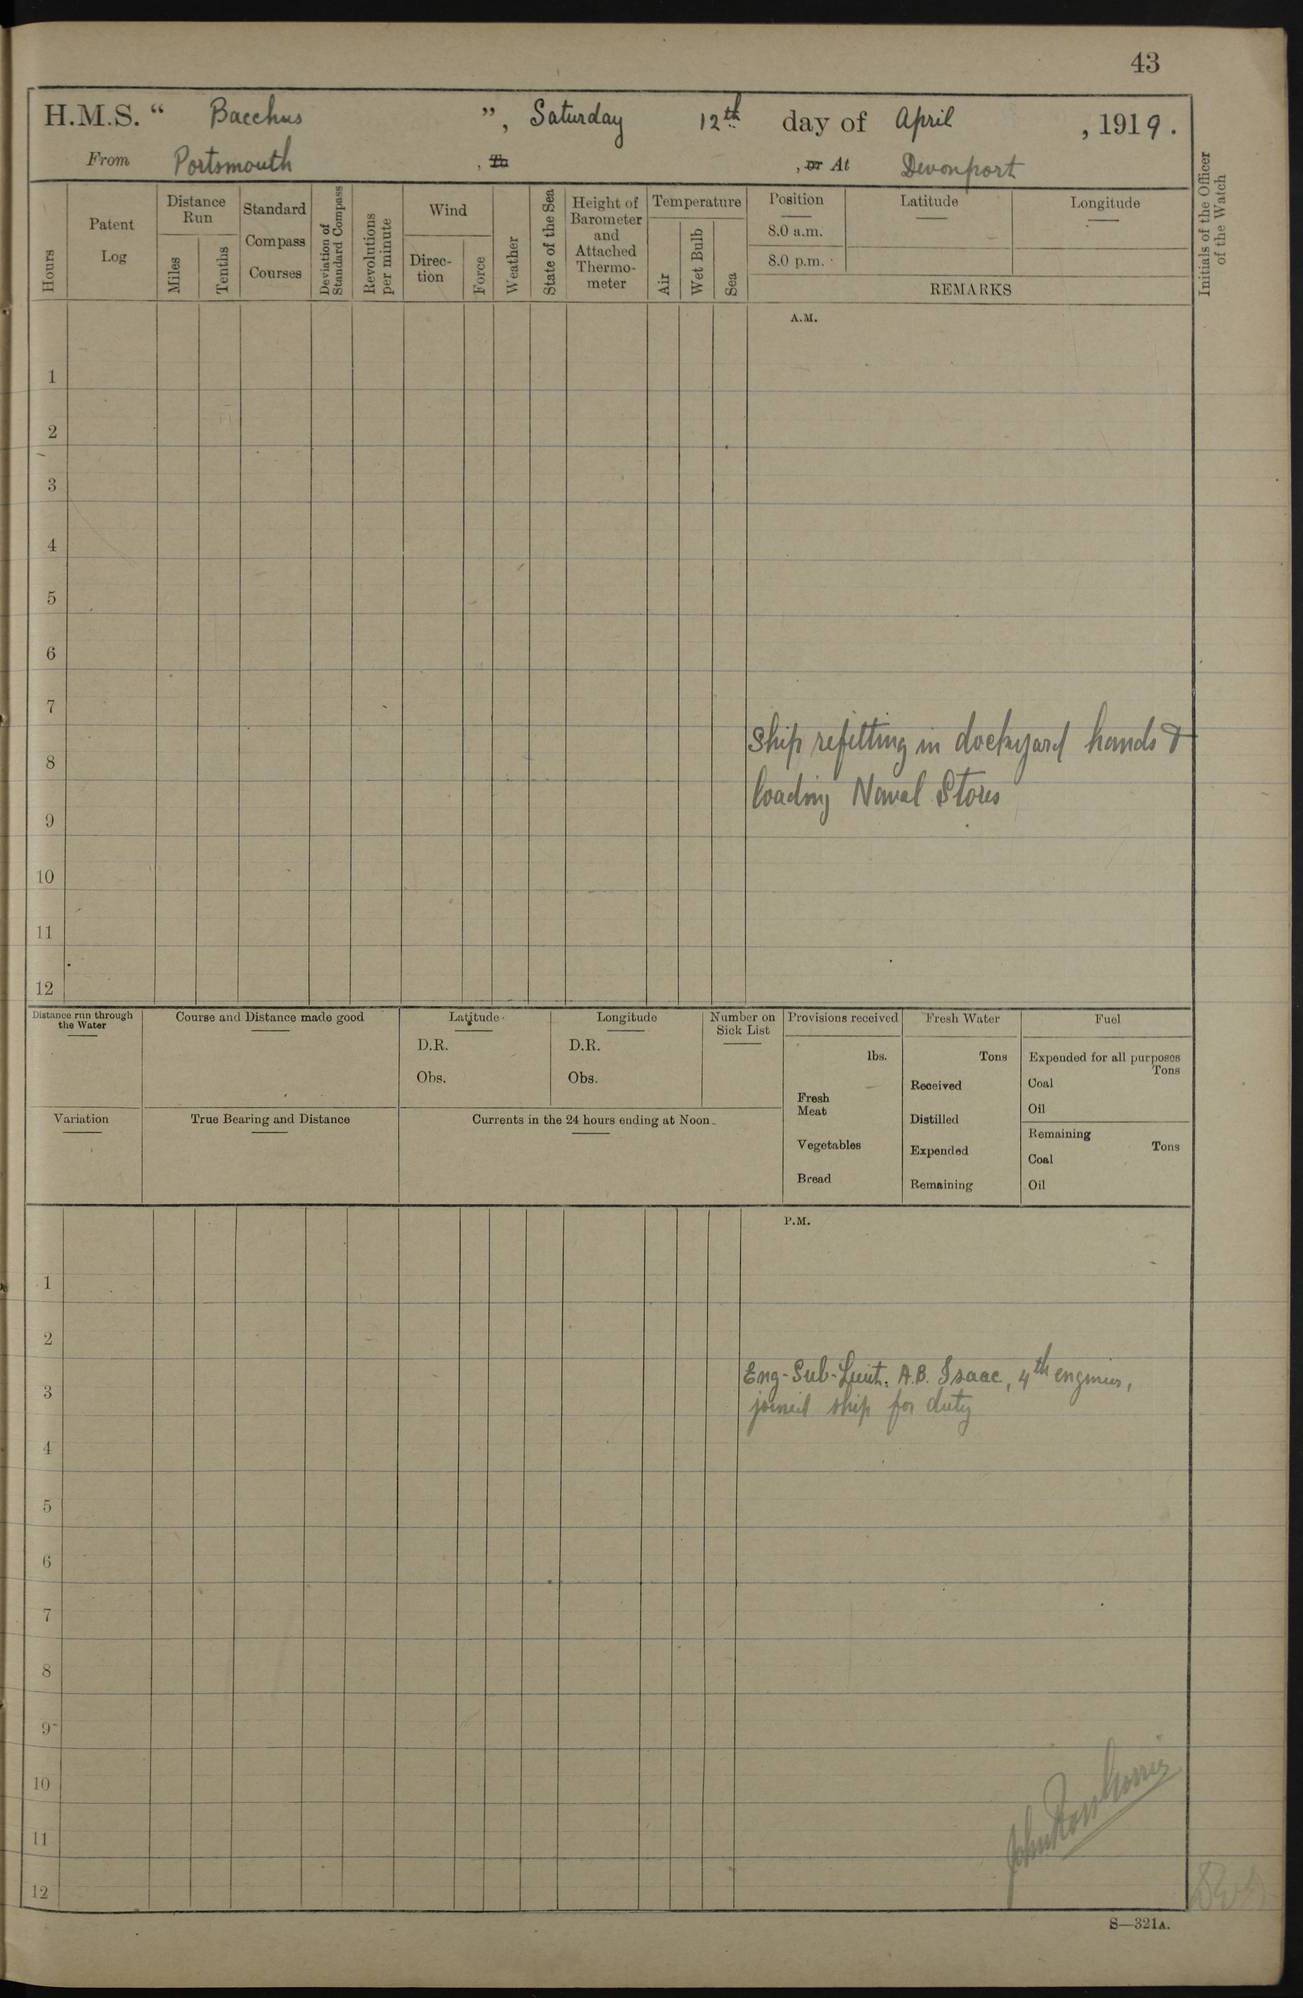 43
H.M.S. “ Bacchus ”, Saturday 12th day of April , 1919.
From Portsmouth , To , or At Devonport
Hours
Patent Log
Distance Run
Miles
Tenths
Standard Compass Courses
Deviation of Standard Compass
Revolutions per minute
Wind
Direc-tion
Force
Weather
State of the Sea
Height of Barometer and Attached Thermo-meter
Temperature
Air
Wet Bulb
Sea
Position
8.0 a.m.
8.0 p.m.
Latitude
Longitude
REMARKS
Initials of the Officer of the Watch
A.M.
1
2
3
4
5
6
7
Ship refitting in dockyard hands &
8
loading Naval Stores
9
10
11
12
Distance run through the Water
Course and Distance made good
Latitude
D.R.
Obs.
Longitude
D.R.
Obs.
Number on Sick List
Provisions received
lbs.
Fresh Meat
Vegetables
Bread
Fresh Water
Tons
Received
Distilled
Expended
Remaining
Fuel
Expended for all purposes
Tons
Coal
Oil
Remaining
Tons
Coal
Oil
Variation
True Bearing and Distance
Currents in the 24 hours ending at Noon
P.M.
1
2
Eng-Sub-Lieut. A.B. Isaac, 4th engineer,
3
joined ship for duty
4
5
6
7
8
9
10
11
12
John
S—321A.